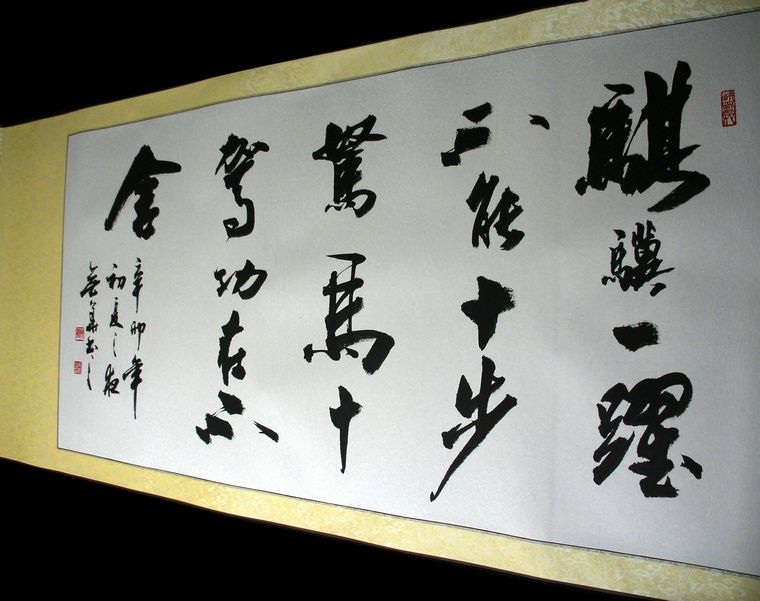 騏驥一躍
不能十步
駑馬十
駕功在不
舍
辛卯年
初夏之夜
書之